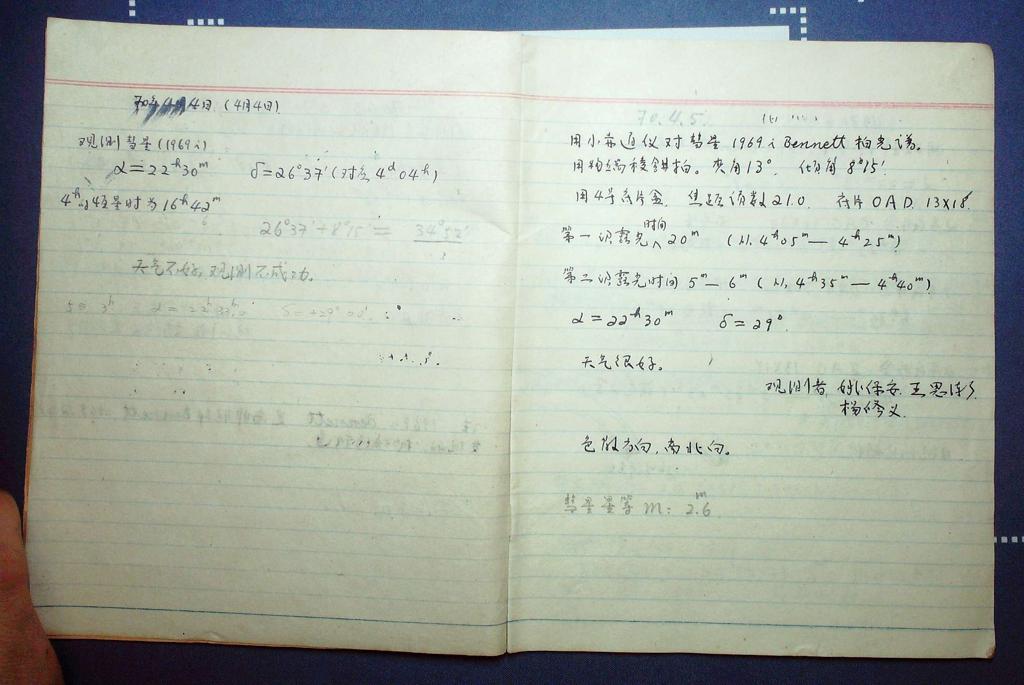 4日 (4月4日)
观测彗星(1969 i)
α=22ʰ30ᵐ δ=26°37′(对应4ᵈ04ʰ)
4ʰ 恒星时为16ʰ42ᵐ
26°37′+8°15′= 34°52′
天气不好,观测不成功。
70.4.5.
用小赛通仪对彗星1969 i Bennett拍光谱。
用物端棱镜拍。夹角13° 倾角8°15′
用4号底片盒 焦距读数21.0 底片OAD. 13×18
第一次露光时间20ᵐ (从4ʰ05ᵐ—4ʰ25ᵐ)
第二次露光时间5ᵐ—6ᵐ(从4ʰ35ᵐ—4ʰ40ᵐ)
α=22ʰ30ᵐ δ=29°.
天气很好。
观测者 姚保安 王思
杨修义
色散方向,南北向。
彗星星等m: 2.6ᵐ